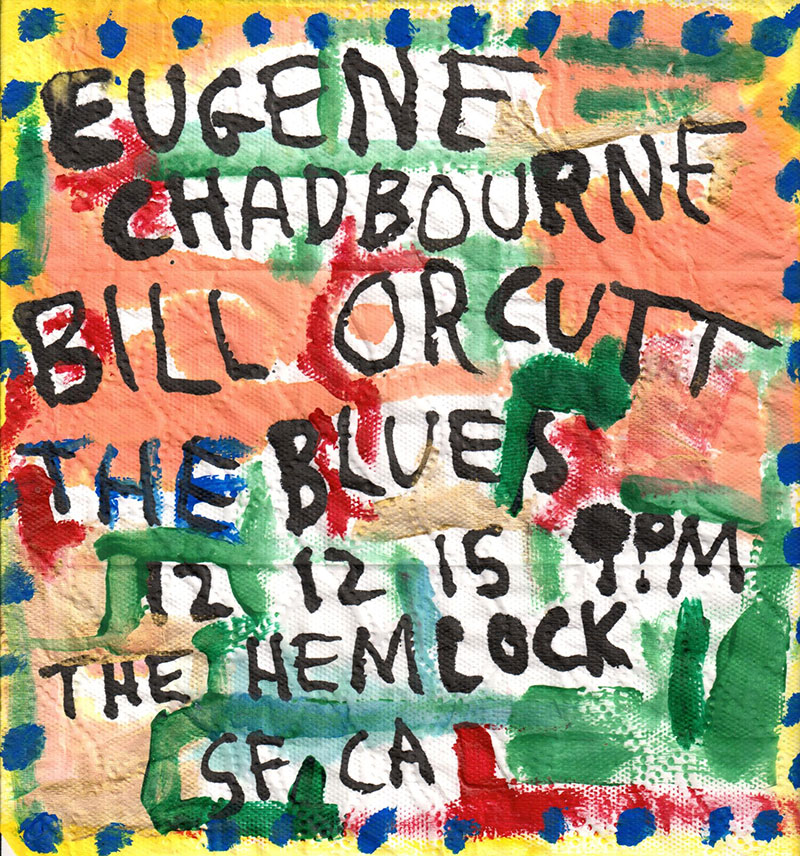 EUGENE
CHADBOURNE
BILL ORCUTT
THE BLUES
12 12 15 9PM
THE HEMLOCK
SF, CA